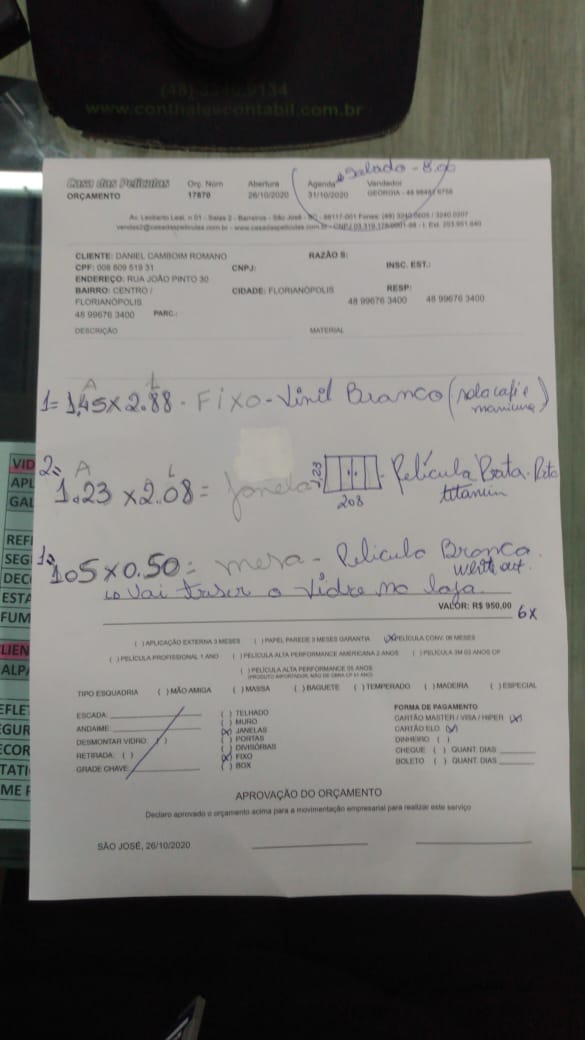 (48) 3240.9134
www.conthalescontabil.com.br
Sabado - 8:00
Casa das Películas Orç. Núm Abertura Agenda Vendedor
ORÇAMENTO 17870 26/10/2020 31/10/2020 GEORGIA - 48 98481 6756
Av. Leoberto Leal, n 01 - Salas 2 - Barreiros - São José - SC - 88117-001 Fones: (48) 3240 0605 / 3240 0207
vendas2@casadaspeliculas.com.br - www.casadaspeliculas.com.br - CNPJ
CLIENTE: DANIEL CAMBOIM ROMANO RAZÃO S:
CPF: 008 609 519 31 CNPJ: INSC. EST.:
ENDEREÇO: RUA JOÃO PINTO 30
BAIRRO: CENTRO / CIDADE: FLORIANÓPOLIS RESP:
FLORIANÓPOLIS 48 99676 3400 48 99676 3400
48 99676 3400 PARC.:
DESCRIÇÃO MATERIAL
A L
1= 1,45 x 2.88 - FIXO - Vinil Branco (sala café e
manicure)
2= A L
1.23 x 2.08 = Janela 1,23 Película Prata - Prata
208 titanium
1= 105 x 0.50 = mesa - Pelicula Branca
white out.
Vai trazer o vidro na loja.
VALOR: R$ 950,00 6x
( ) APLICAÇÃO EXTERNA 3 MESES ( ) PAPEL PAREDE 3 MESES GARANTIA (x) PELÍCULA CONV. 06 MESES
( ) PELÍCULA PROFISSIONAL 1 ANO ( ) PELÍCULA ALTA PERFORMANCE AMERICANA 2 ANOS ( ) PELÍCULA 3M 03 ANOS CP
( ) PELÍCULA ALTA PERFORMANCE 05 ANOS
(PRODUTO IMPORTADOR, MÃO DE OBRA CP 01 ANO)
TIPO ESQUADRIA ( ) MÃO AMIGA ( ) MASSA ( ) BAGUETE ( ) TEMPERADO ( ) MADEIRA ( ) ESPECIAL
ESCADA: ( ) TELHADO FORMA DE PAGAMENTO
ANDAIME: ( ) MURO CARTÃO MASTER / VISA / HIPER (x)
DESMONTAR VIDRO: ( ) (x) JANELAS CARTÃO ELO (x)
RETIRADA: ( ) ( ) PORTAS DINHEIRO ( )
GRADE CHAVE: ( ) DIVISÓRIAS CHEQUE ( ) QUANT. DIAS
(x) FIXO BOLETO ( ) QUANT. DIAS
( ) BOX
APROVAÇÃO DO ORÇAMENTO
Declaro aprovado o orçamento acima para a movimentação empresarial para realizar este serviço
SÃO JOSÉ, 26/10/2020
VID
APL
GAL
REF
SEG
DEC
ESTA
FUM
CLIEN
ALPA
EFLE
EGUR
ECOR
TATI
ME F